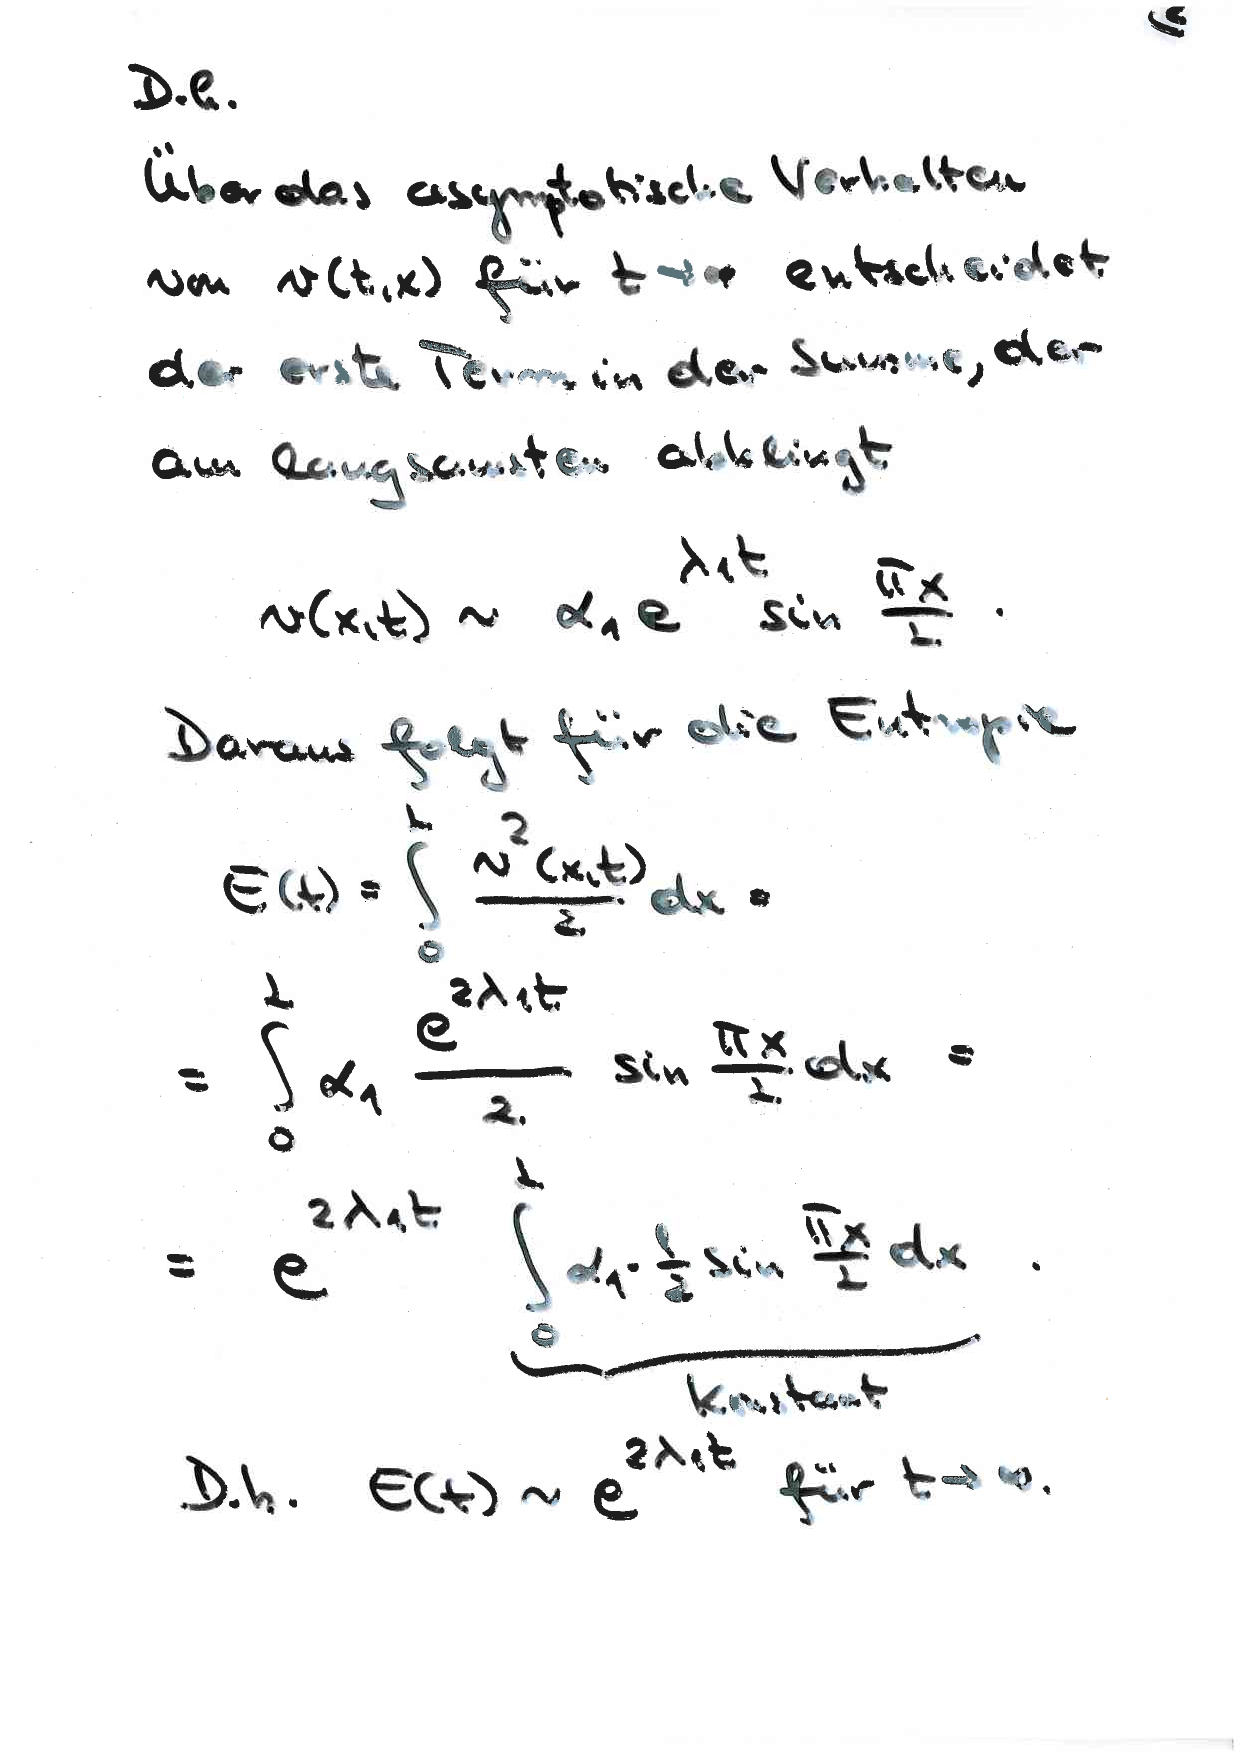 D.h.
Über das asymptotische Verhalten
von v(t,x) für t → ∞ entscheidet
der erste Term in der Summe, der
am langsamsten abklingt
v(x,t) ~ α₁ e^{λ₁t} sin \frac{πx}{L} .
Daraus folgt für die Entropie
E(t) = ∫_0^L \frac{v^2(x,t)}{2} dx =
= ∫_0^L α₁ \frac{e^{2λ₁t}}{2} sin \frac{πx}{L} dx =
= e^{2λ₁t} ∫_0^L α₁ · \frac{1}{2} sin \frac{πx}{L} dx .
Konstant
D.h. E(t) ~ e^{2λ₁t} für t → ∞.